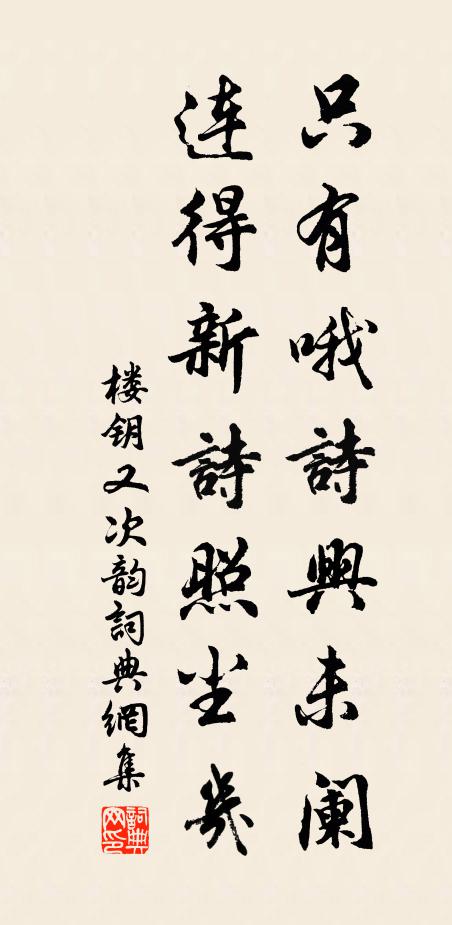 只有哦詩興未阑
連得新詩照尘幾
楼钥又次韵詞典網集
詞典
网印